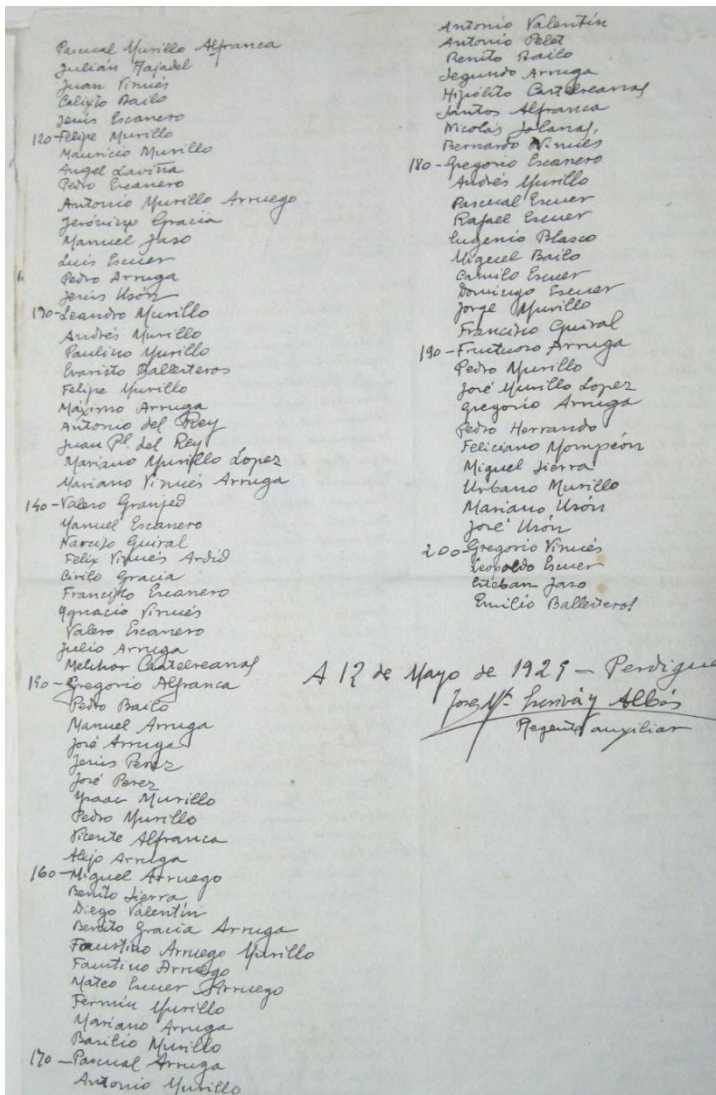 Pascual Murillo Alfranca
Julián Tajadel
Juan Vinués
Calixto Bailo
Jesús Escanero
120-Felipe Murillo
Mauricio Murillo
Angel Laviña
Pedro Escanero
Antonio Murillo Arruego
Jerónimo Gracia
Manuel Jaso
Luis Escuer
Pedro Arruga
Jesús Usón
130-Leandro Murillo
Andrés Murillo
Paulino Murillo
Evaristo Ballesteros
Felipe Murillo
Máximo Arruga
Antonio del Rey
Juan Pl. del Rey
Mariano Murillo Lopez
Mariano Vinués Arruga
140-Valero Granjed
Manuel Escanero
Narciso Guiral
Felix Vinués Ardid
Cirilo Gracia
Francisco Escanero
Ygnacio Vinués
Valero Escanero
Julio Arruga
Melchor Castelreanas
150-Gregorio Alfranca
Pedro Bailo
Manuel Arruga
José Arruga
Jesús Perez
José Perez
Ysaac Murillo
Pedro Murillo
Vicente Alfranca
Alejo Arruga
160-Miguel Arruego
Benito Sierra
Diego Valentín
Benito Gracia Arruga
Faustino Arruego Murillo
Faustino Arruego
Mateo Escuer Arruego
Fermín Murillo
Mariano Arruga
Basilio Murillo
170-Pascual Arruga
Antonio Murillo
Antonio Valentín
Antonio Pelet
Benito Bailo
Segundo Arruga
Hipólito Castelreanas
Santos Alfranca
Nicolás Solanas,
Bernardo Vinués
180-Gregorio Escanero
Andrés Murillo
Pascual Escuer
Rafael Escuer
Eugenio Blasco
Miguel Bailo
Camilo Escuer
Domingo Escuer
Jorge Murillo
Francisco Guiral
190-Fructuoso Arruga
Pedro Murillo
José Murillo Lopez
Gregorio Arruga
Pedro Herrando
Feliciano Mompeón
Miguel Sierra
Urbano Murillo
Mariano Usón
José Usón
200-Gregorio Vinués
Leopoldo Escuer
Esteban Jaso
Emilio Ballesteros
A 12 de Mayo de 1925 - Perdigue
José Mª Escrivá y Albás
Regente auxiliar